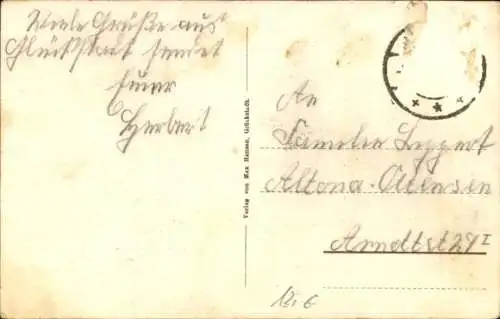 Viele Grüße aus
Glückstadt sendet
Euer
Herbert
Verlag von Max Hansen, Glückstadt.
An
Familie Leppert
Altona-Ottensen
Arndtstr 29 I
12.6